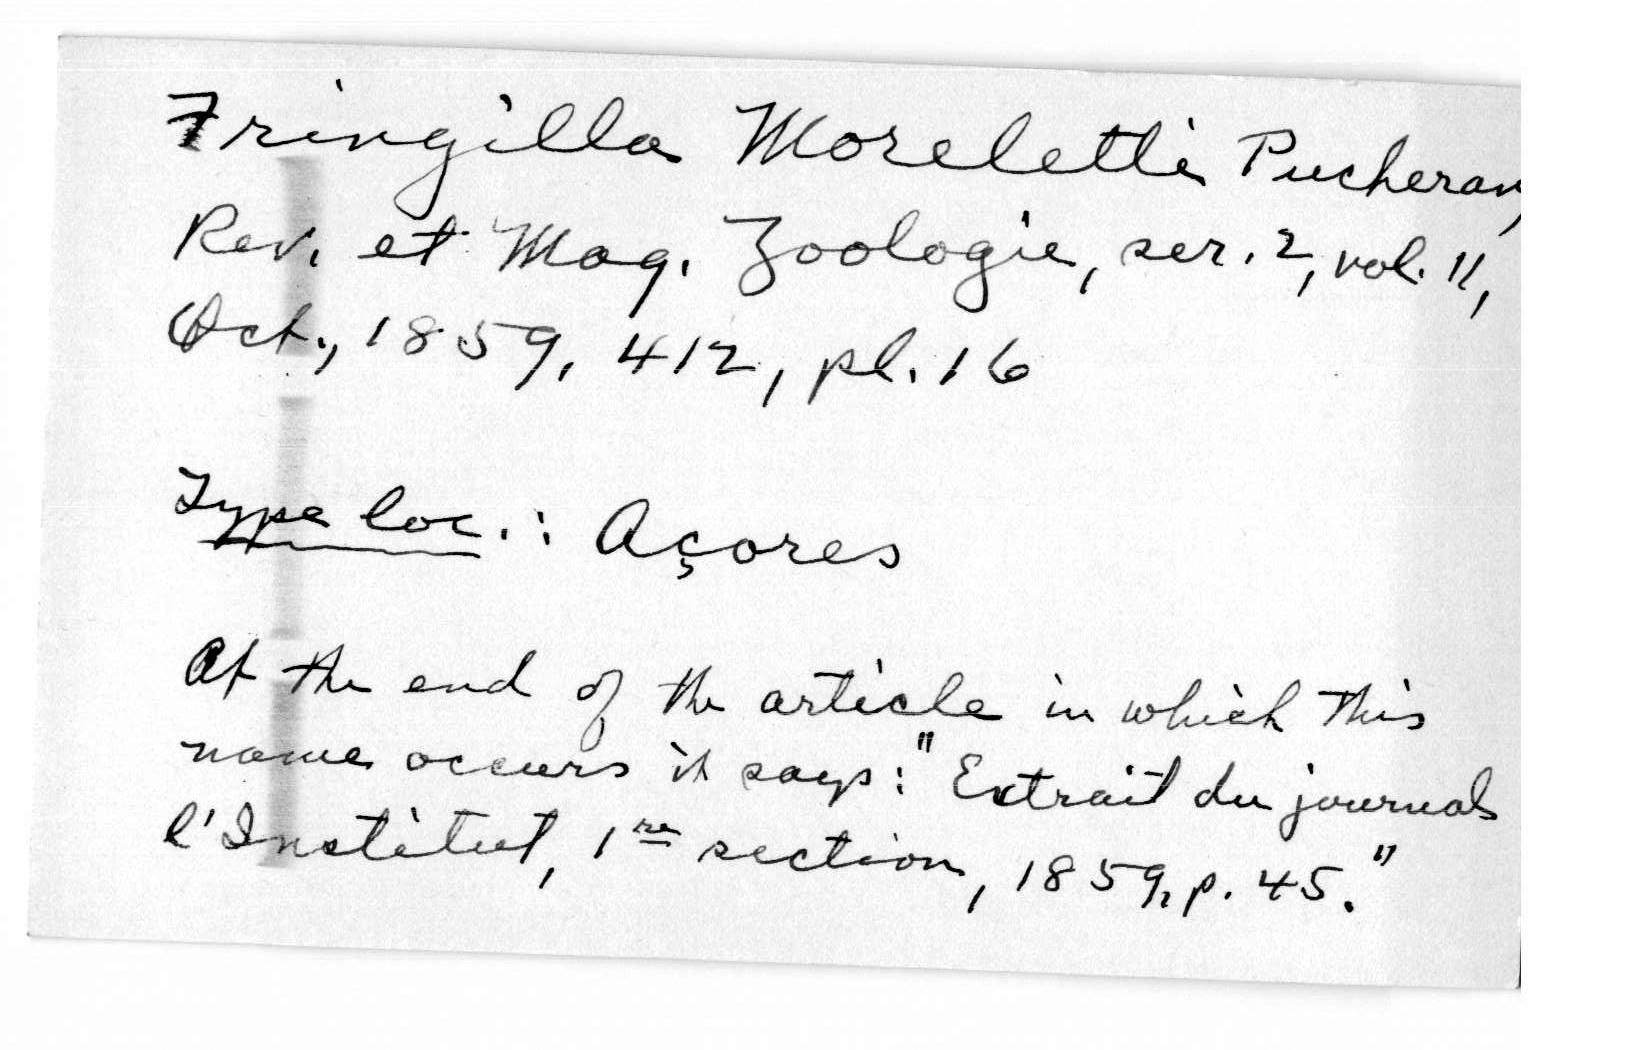 Fringilla Moreletti Pucheran,
Rev. et Mag. Zoologie, ser. 2, vol. 11,
Oct., 1859, 412, pl. 16
Type loc.: Açores
At the end of the article in which this
name occurs it says: "Extrait du journal
l'Institut, 1re section, 1859, p. 45."